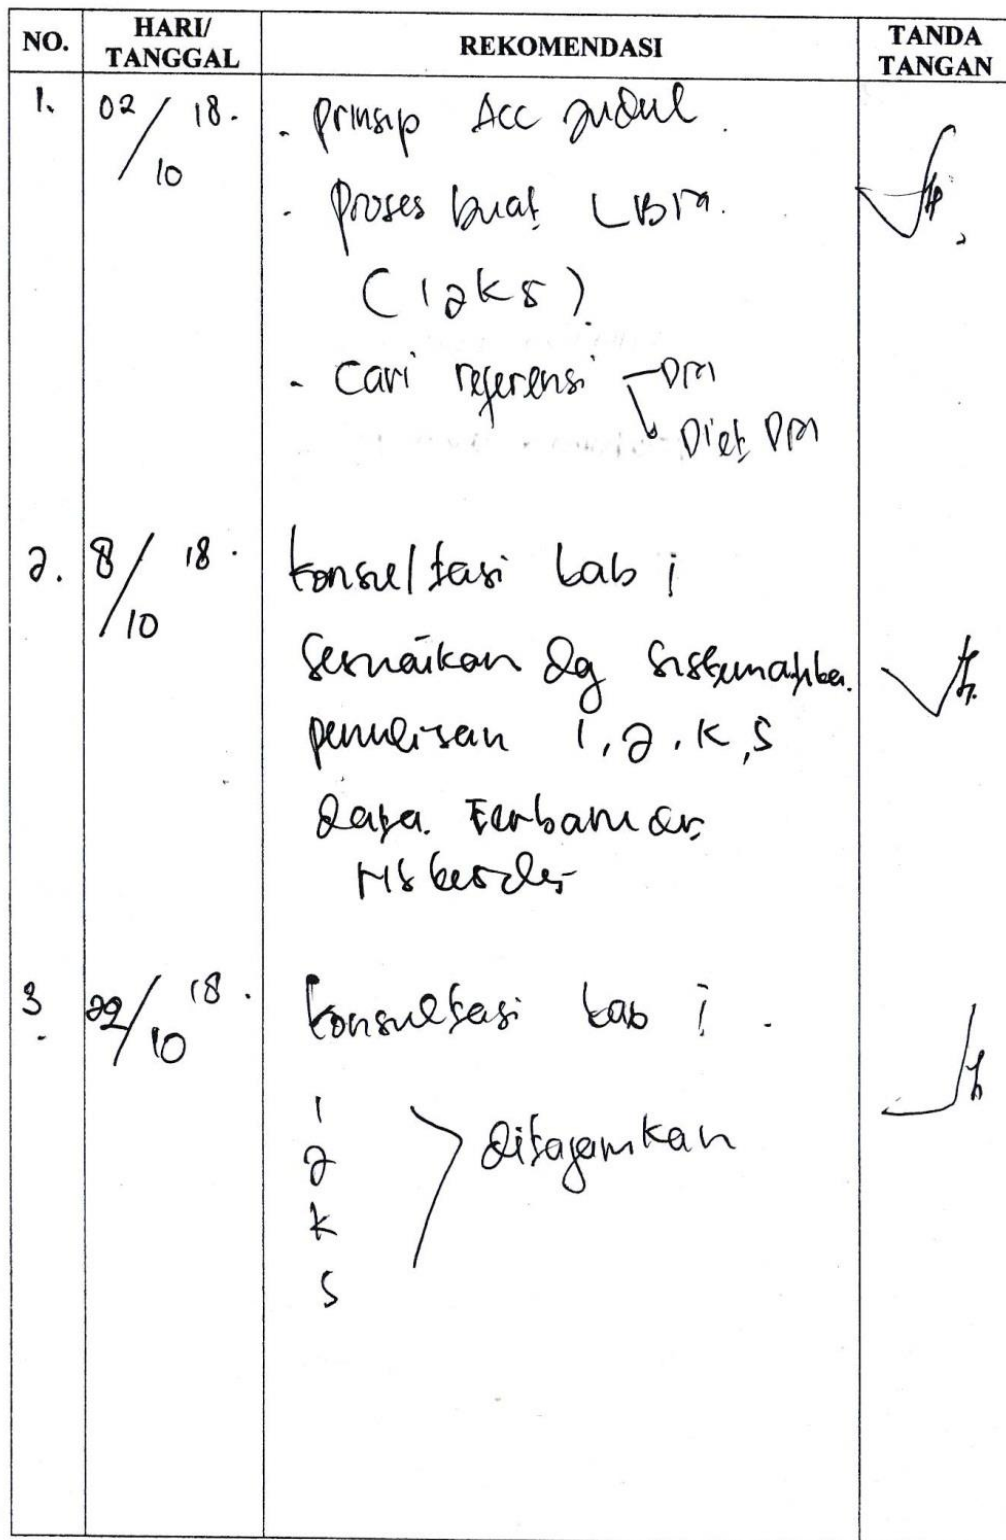 NO. HARI/ TANGGAL REKOMENDASI TANDA TANGAN
1. 02/10 18. - prinsip Acc judul.
- proses buat LBM.
(1 2 K S).
- Cari referensi DM
Diet DM
2. 8/10 18. konsultasi bab i
sesuaikan dg sistematika.
penulisan 1, 2, K, S
data. Terbaru dr
riskesdas
3. 22/10 18. konsultasi bab i.
1
2
K
S
ditajamkan